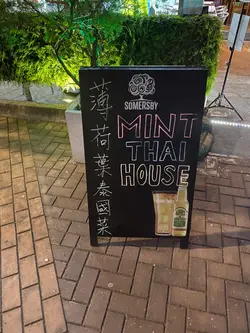 薄荷葉泰國菜
SOMERSBY
MINT
THAI
HOUSE